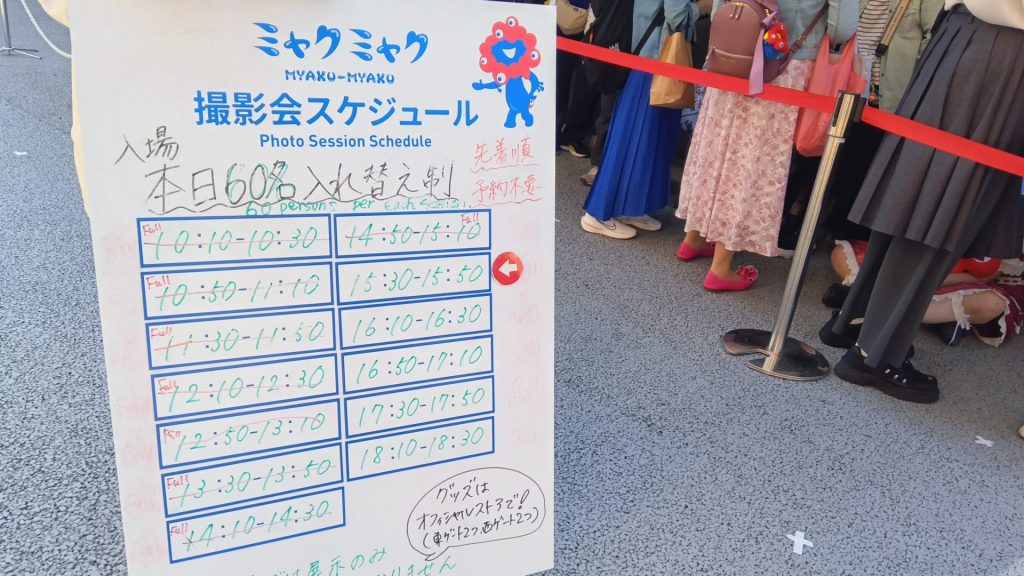 ミャクミャク
MYAKU-MYAKU
撮影会スケジュール
Photo Session Schedule
先着順
予約不要
入場
本日60名入れ替え制
60 persons per each session.
Full
10:10-10:30
Full
10:50-11:10
Full
11:30-11:50
Full
12:10-12:30
Full
12:50-13:10
Full
13:30-13:50
Full
14:10-14:30
Full
14:50-15:10
15:30-15:50
16:10-16:30
16:50-17:10
17:30-17:50
18:10-18:30
グッズは
オフィシャルストアで!
(東ゲート2つ、西ゲート2つ)
展示のみ
りません